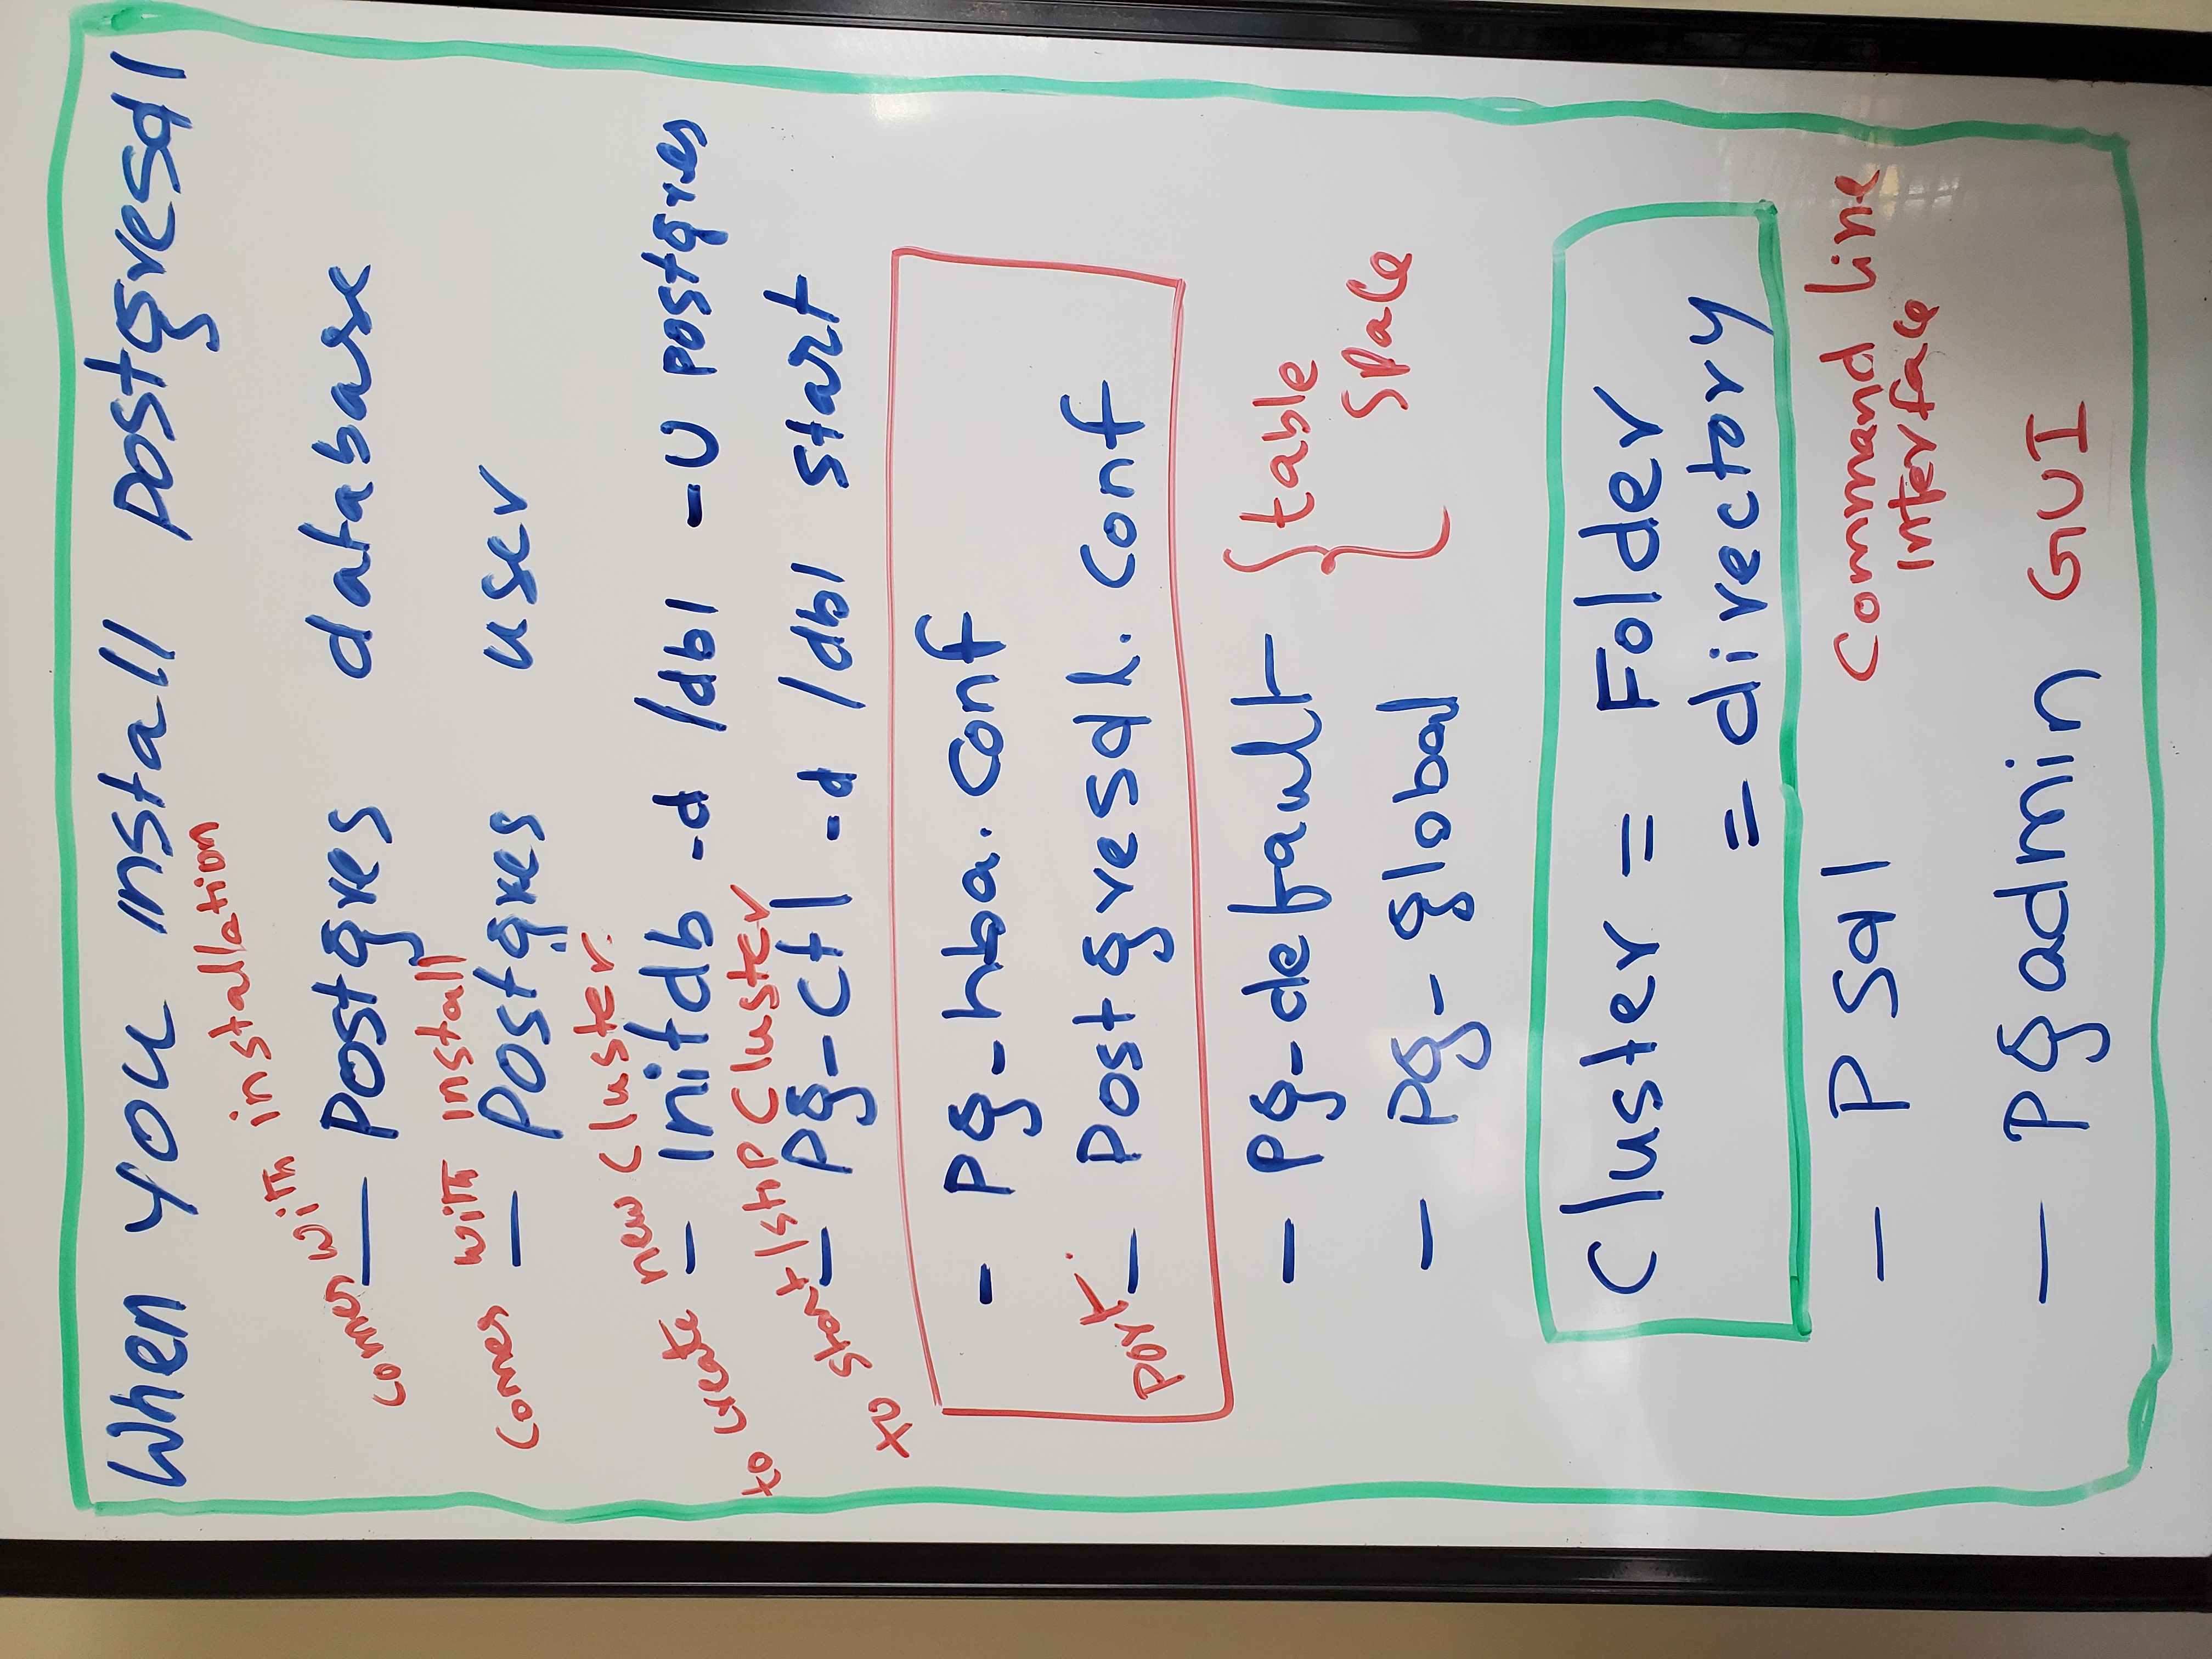 When you install postgresql
comes with installation
— postgres database
comes with install
— postgres user
to create new cluster.
- Initdb -d /db1 -U postgres
to start/stop Cluster
- Pg-ctl -d /db1 start
- Pg-hba.conf
port - Postgresql.conf
- Pg-default { table
space
- Pg-global
Cluster = Folder
= directory
- Psql Command line
Interface
- Pgadmin GUI